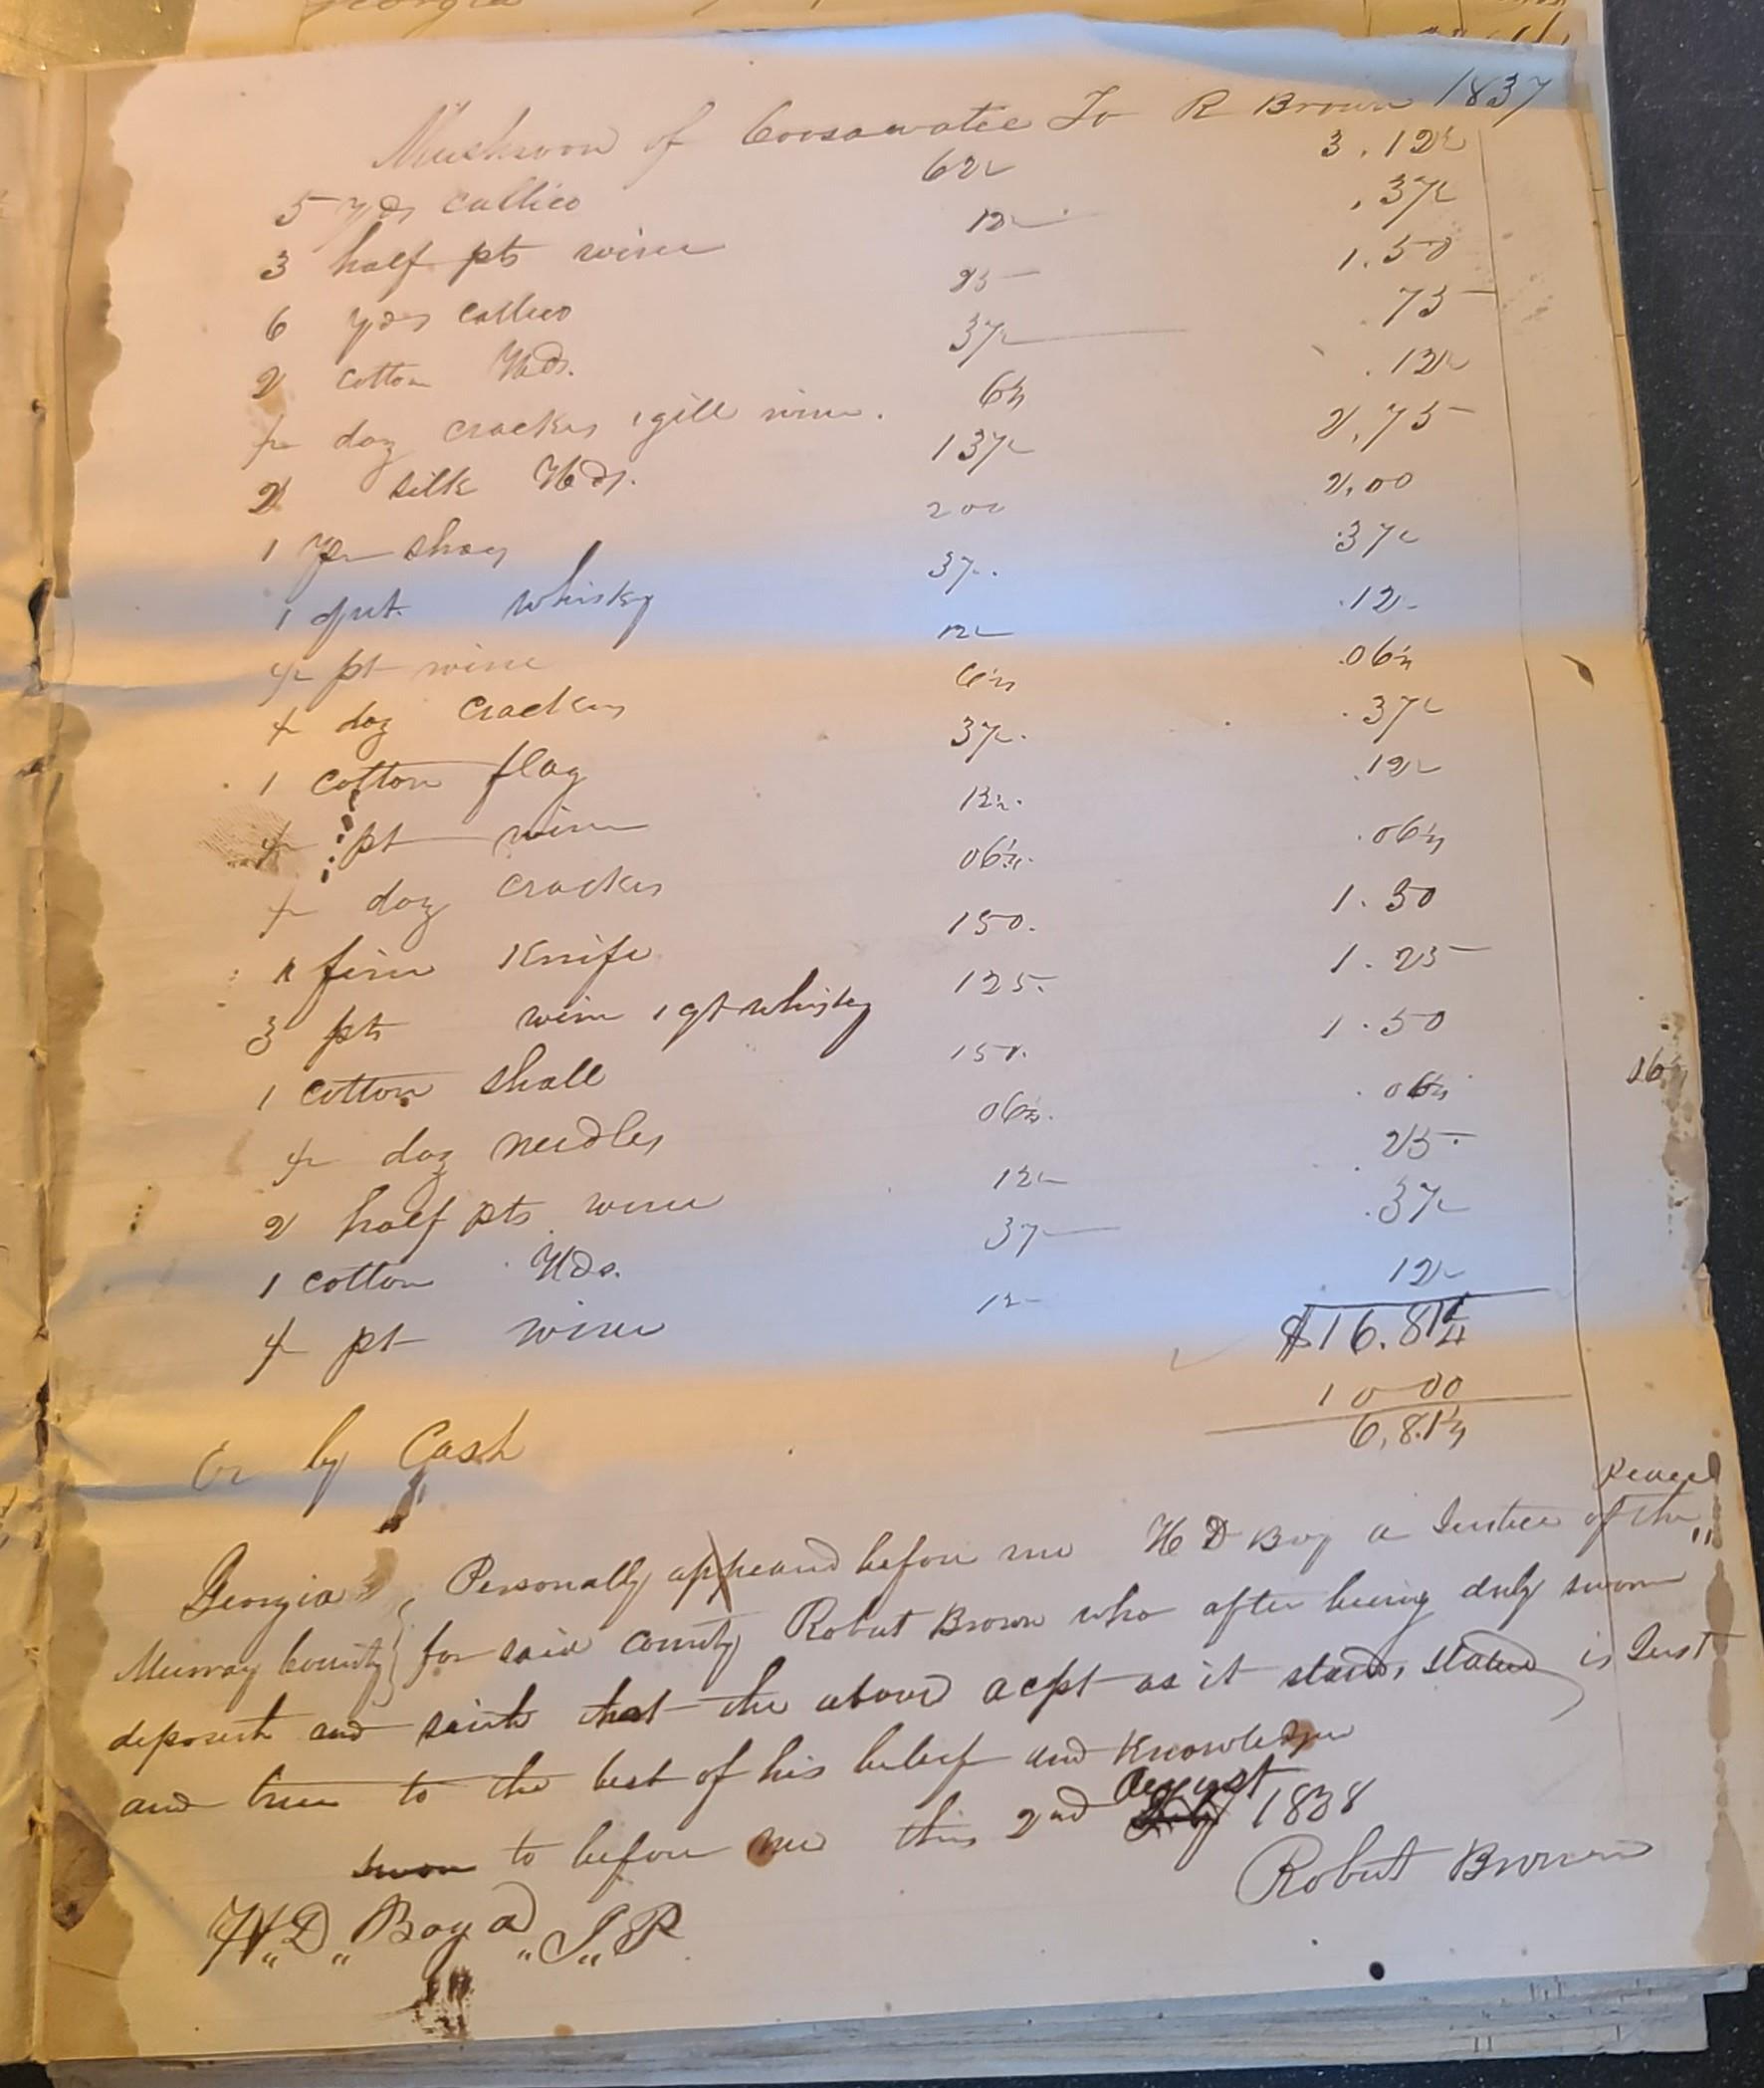 Georgia
Mushroon of Coosawatee To R Brown 1837
5 yds callico 62½ 3.12½
3 half pts wine 12½ .37½
6 yds callico 25 1.50
2 cotton Hds. 37½ 75
½ doz crackers 1 gill wine. 6¼ .12½
2 silk Hds. 137½ 2,75
1 pr shoes 200 2,00
1 qut. whisky 37. .37½
½ pt wine 12½ .12
½ doz crackers 6¼ .06¼
1 cotton flag 37½. .37½
½ pt wine 12½. .12½
½ doz crackers 06¼. .06¼
1 fine Knife 150. 1.50
3 pts wine 1 qt whisky 125. 1.25
1 cotton shall 150. 1.50
½ doz needles 06¼. .06¼
2 half pts wine 12½ 25
1 cotton Hds. 37 .37½
½ pt wine 12 12½
$16.81¼
Cr by Cash 10 00
6,81¼
peace
Georgia } Personally appeard before me H D Boy a Justice of the
Murray County } for said county Robert Brown who after being duly sworn
deposeth and saith that the above acpt as it stands, stated is Just
and true to the best of his beleif and Knowledge
sworn to before me this 2nd August 1838
Robert Brown
H,, D,, Boyd,, J,, P